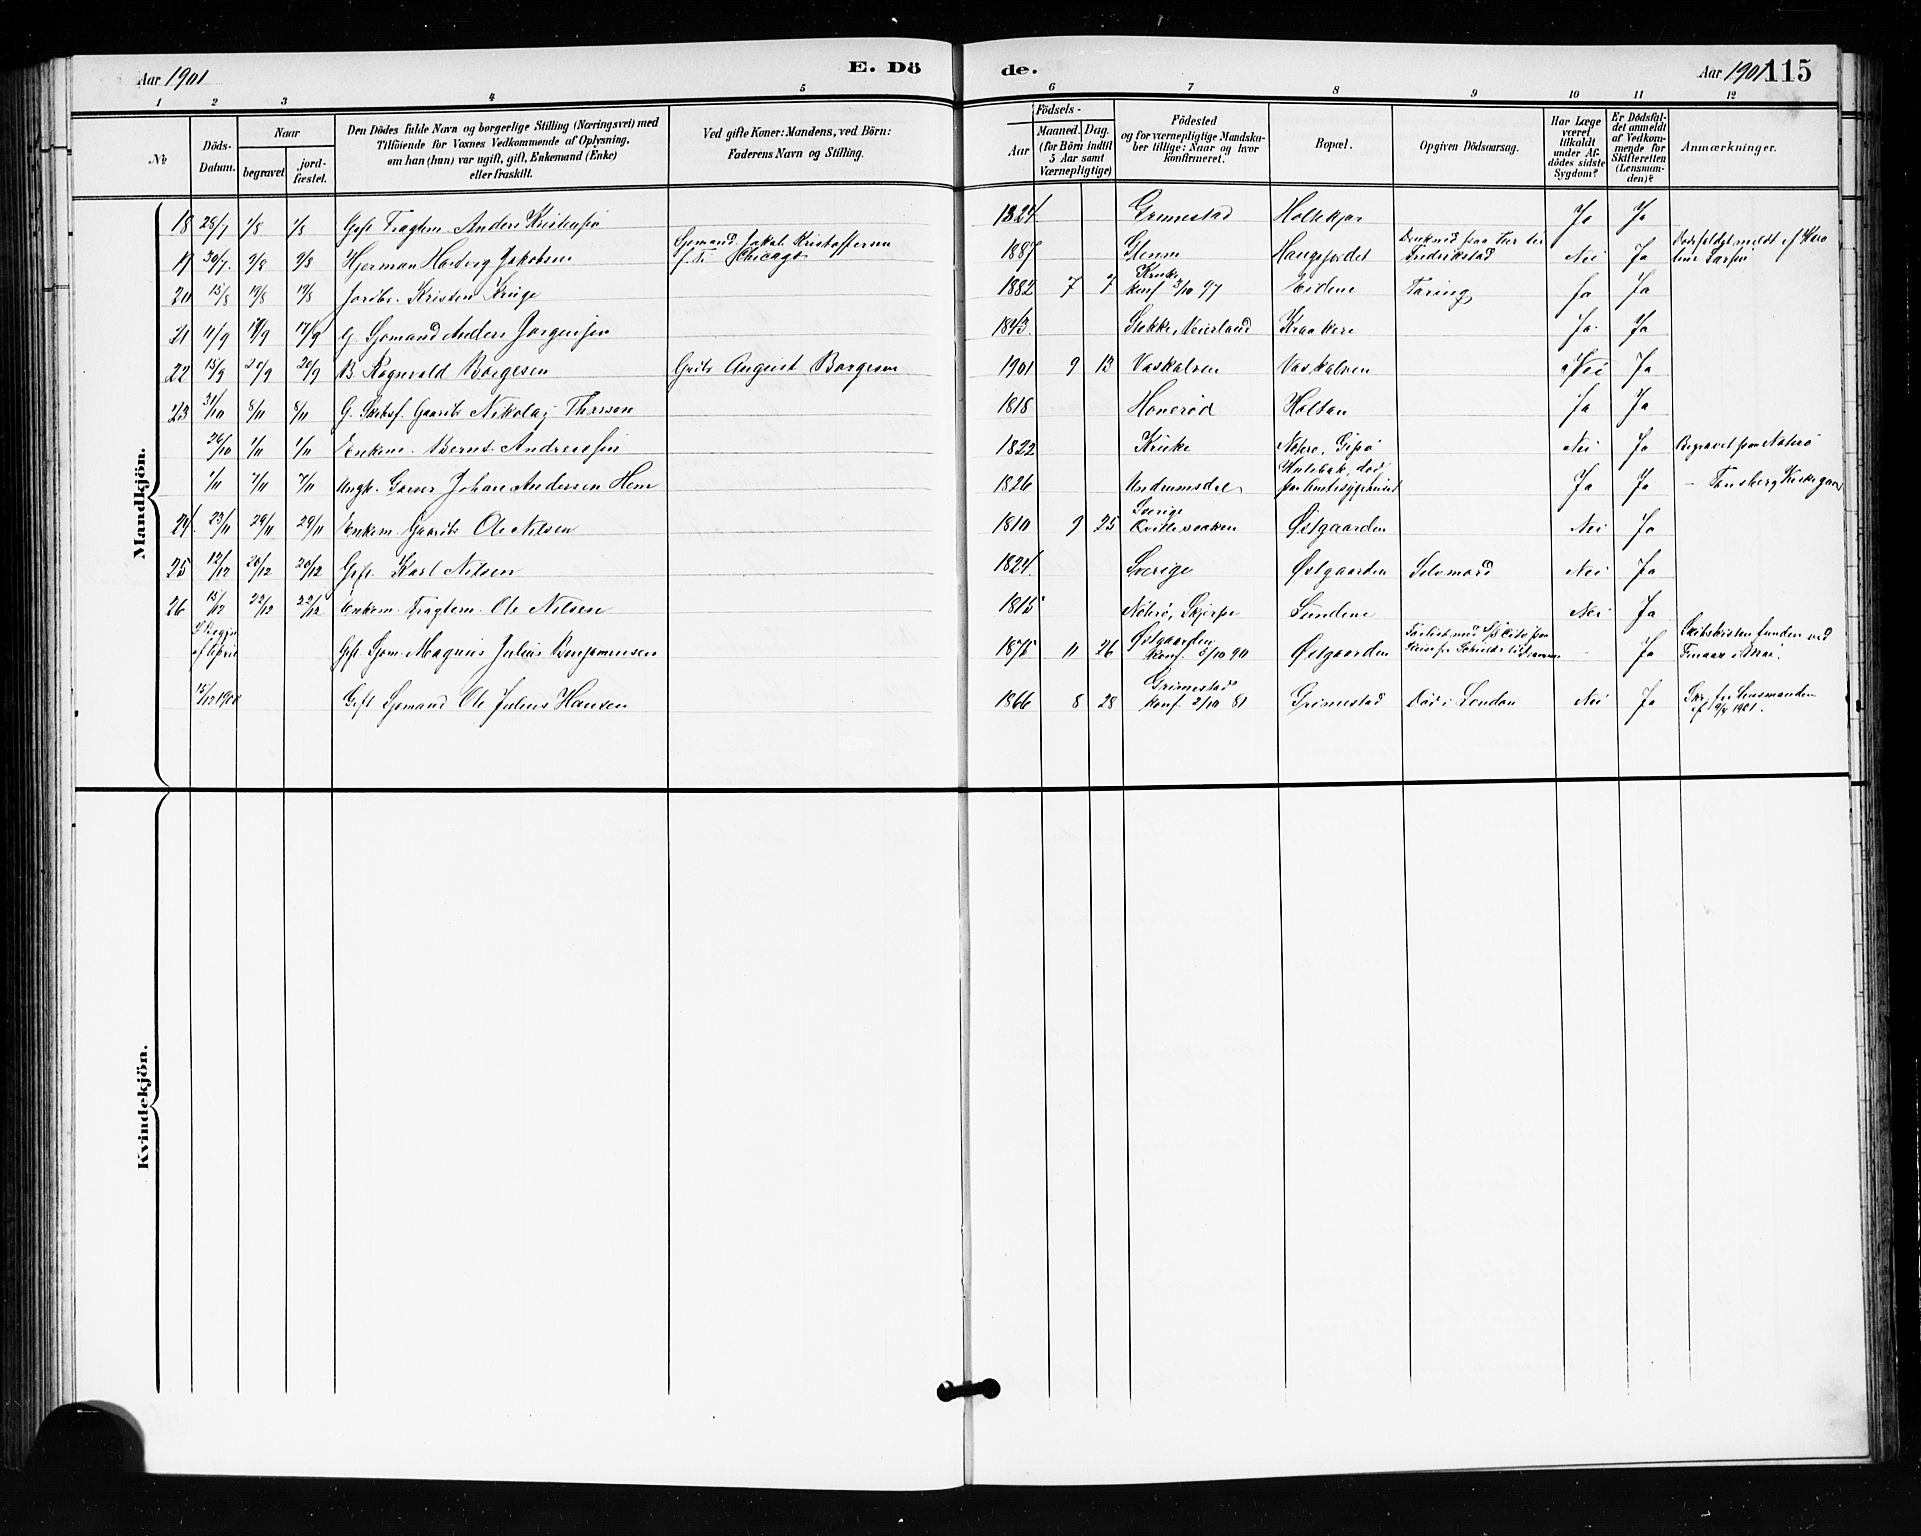 Aar 1901
E. Dö
de.
Aar 1901
115
1 2 3 4 5 6 7 8 9 10 11 12
№
Döds-
Datum.
Naar
begravet
jord-
fæstet.
Den Dödes fulde Navn og borgerlige Stilling (Næringsvei) med
Tilföiende for Voxnes Vedkommende af Oplysning,
om han (hun) var ugift, gift, Enkemand (Enke)
eller fraskilt.
Ved gifte Koner: Mandens, ved Börn:
Faderens Navn og Stilling.
Födsels-
Aar
Maaned. Dag.
(for Börn indtil
5 Aar samt
Værnepligtige)
Födested
og for værnepligtige Mandska-
ber tillige: Naar og hvor
konfirmeret.
Bopæl.
Opgiven Dödsaarsag.
Har Læge
været
tilkaldt
under Af-
dödes sidste
Sygdom?
Er Dödsfal-
det anmeldt
af Vedkom-
mende for
Skifteretten
(Lensman-
den)?
Anmærkninger.
Mandkjön.
18 28/7 1/8 1/8 Gift Fragtm. Anders Kristensen 1824 Grimestad Holtekjær Ja Ja
19 30/7 9/8 9/8 Hjerman Hartvig Jakobsen Sømand Jakob Kristoffersen Chicago 1887 Glemm Haugsfjordet Fredrikstad Nei Ja
20 15/8 19/8 19/8 Jordbr. Kristen Kruge 1882 7 7 Kruke konf 3/10 97 Eidene Tæring Ja Ja
21 11/9 17/9 17/9 G. Sømand Anders Jørgensen 1843 Stokke, Veierland Kraakere Ja Ja
22 15/9 20/9 20/9 B. Ragnvald Borgesen Gbr. August Borgesen 1901 9 13 Vaskalven Vaskalven Nei Ja
23 31/10 8/11 8/11 G. Skibsf. Gaardbr. Nikolaj Thresen 1818 Honerød Holtan Ja Ja
26/10 1/11 1/11 Enkem. Bernt Andreassen 1822 Kruke Nøterø, Gipø Nei Ja Begravet paa Nøterø
1/11 7/11 7/11 Ungk. Garver Johan Andersen Hem 1826 Undrumsdal Hulebak, død paa Amtssygehuset Ja Ja - Tønsberg Kirkegaard
24 23/11 29/11 29/11 Enkem. Gaardbr. Ole Nilsen 1810 9 25 Sverige Østgaarden Nei Ja
25 12/12 20/12 20/12 Gift Karl Nilsen 1824 Sverige Østgaarden Selvmord Nei Ja
26 15/12 22/12 22/12 Enkem. Fragtem. Ole Nilsen 1815 Nøterø, Skjerpe Sundene Nei Ja
I Begyn. af April Gift Sjøm. Magnus Julius Benjaminsen 1875 11 26 Østgaarden konf. 5/10 90 Østgaarden Forlist med S/S - Ja Skibskisten funden ved i Mai.
15/12 1900 Gift Sjømand Ole Julius Hansen 1866 8 28 Grimestad konf 2/10 81 Grimestad Død i London Nei Ja Skr. fra Lensmanden af 9/4 1901.
Kvindekjön.